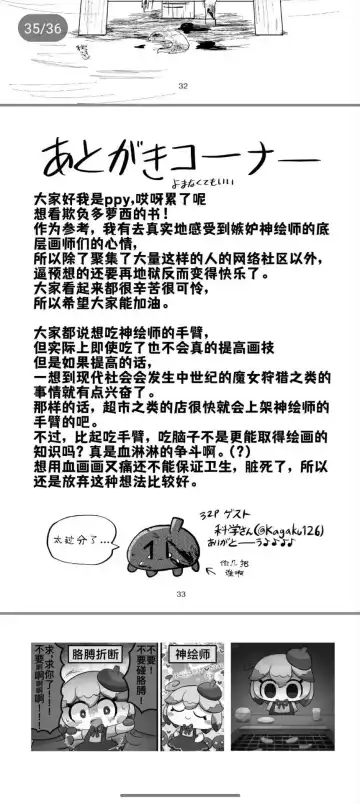 35/36
32
あとがきコーナー
よまなくてもいい
大家好我是ppy,哎呀累了呢
想看欺负多萝西的书！
作为参考，我有去真实地感受到嫉妒神绘师的底
层画师们的心情，
所以除了聚集了大量这样的人的网络社区以外，
逼预想的还要再地狱反而变得快乐了。
大家看起来都很辛苦很可怜，
所以希望大家能加油。
大家都说想吃神绘师的手臂，
但实际上即使吃了也不会真的提高画技
但是如果提高的话，
一想到现代社会会发生中世纪的魔女狩猎之类的
事情就有点兴奋了。
那样的话，超市之类的店很快就会上架神绘师的
手臂的吧。
不过，比起吃手臂，吃脑子不是更能取得绘画的
知识吗？真是血淋淋的争斗啊。（？）
想用血画画又痛还不能保证卫生，脏死了，所以
还是放弃这种想法比较好。
32P ゲスト
科学さん(@Kagaku126)
ありがとーう♪♪♪♪
太过分了...
你几把
谁啊
33
胳膊折断
神绘师
求，求你了！！！
不要啊啊啊啊！！！
不要！
不要碰胳膊！